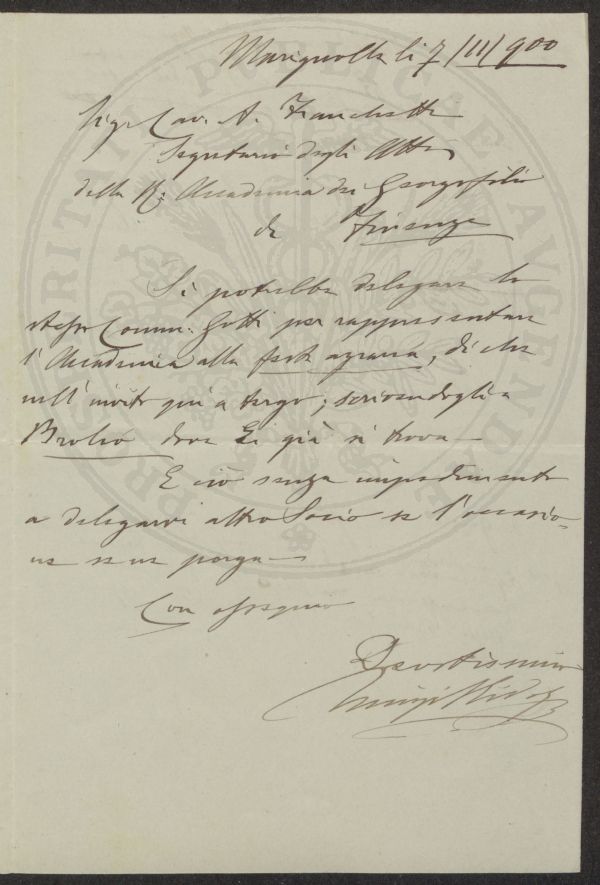 Marignolle li 7/11/900
Sigr Cav. A. Franchetti
Segretario degli Atti
della R. Accademia dei Georgofili
di Firenze
Si potrebbe delegare lo
stesso Comm. Gotti per rappresentare
l'Accademia alla festa agraria, di che
nell'invito qui a tergo; scrivendogli a
Brolio dove Ei già si trova
E ciò senza impedimento
a delegarvi altro Socio se l'occasio-
ne se ne porga
Con ossequio
Devotissimo
Luigi Ridolfi
PROSPERITATI PUBLICAE AUGENDAE